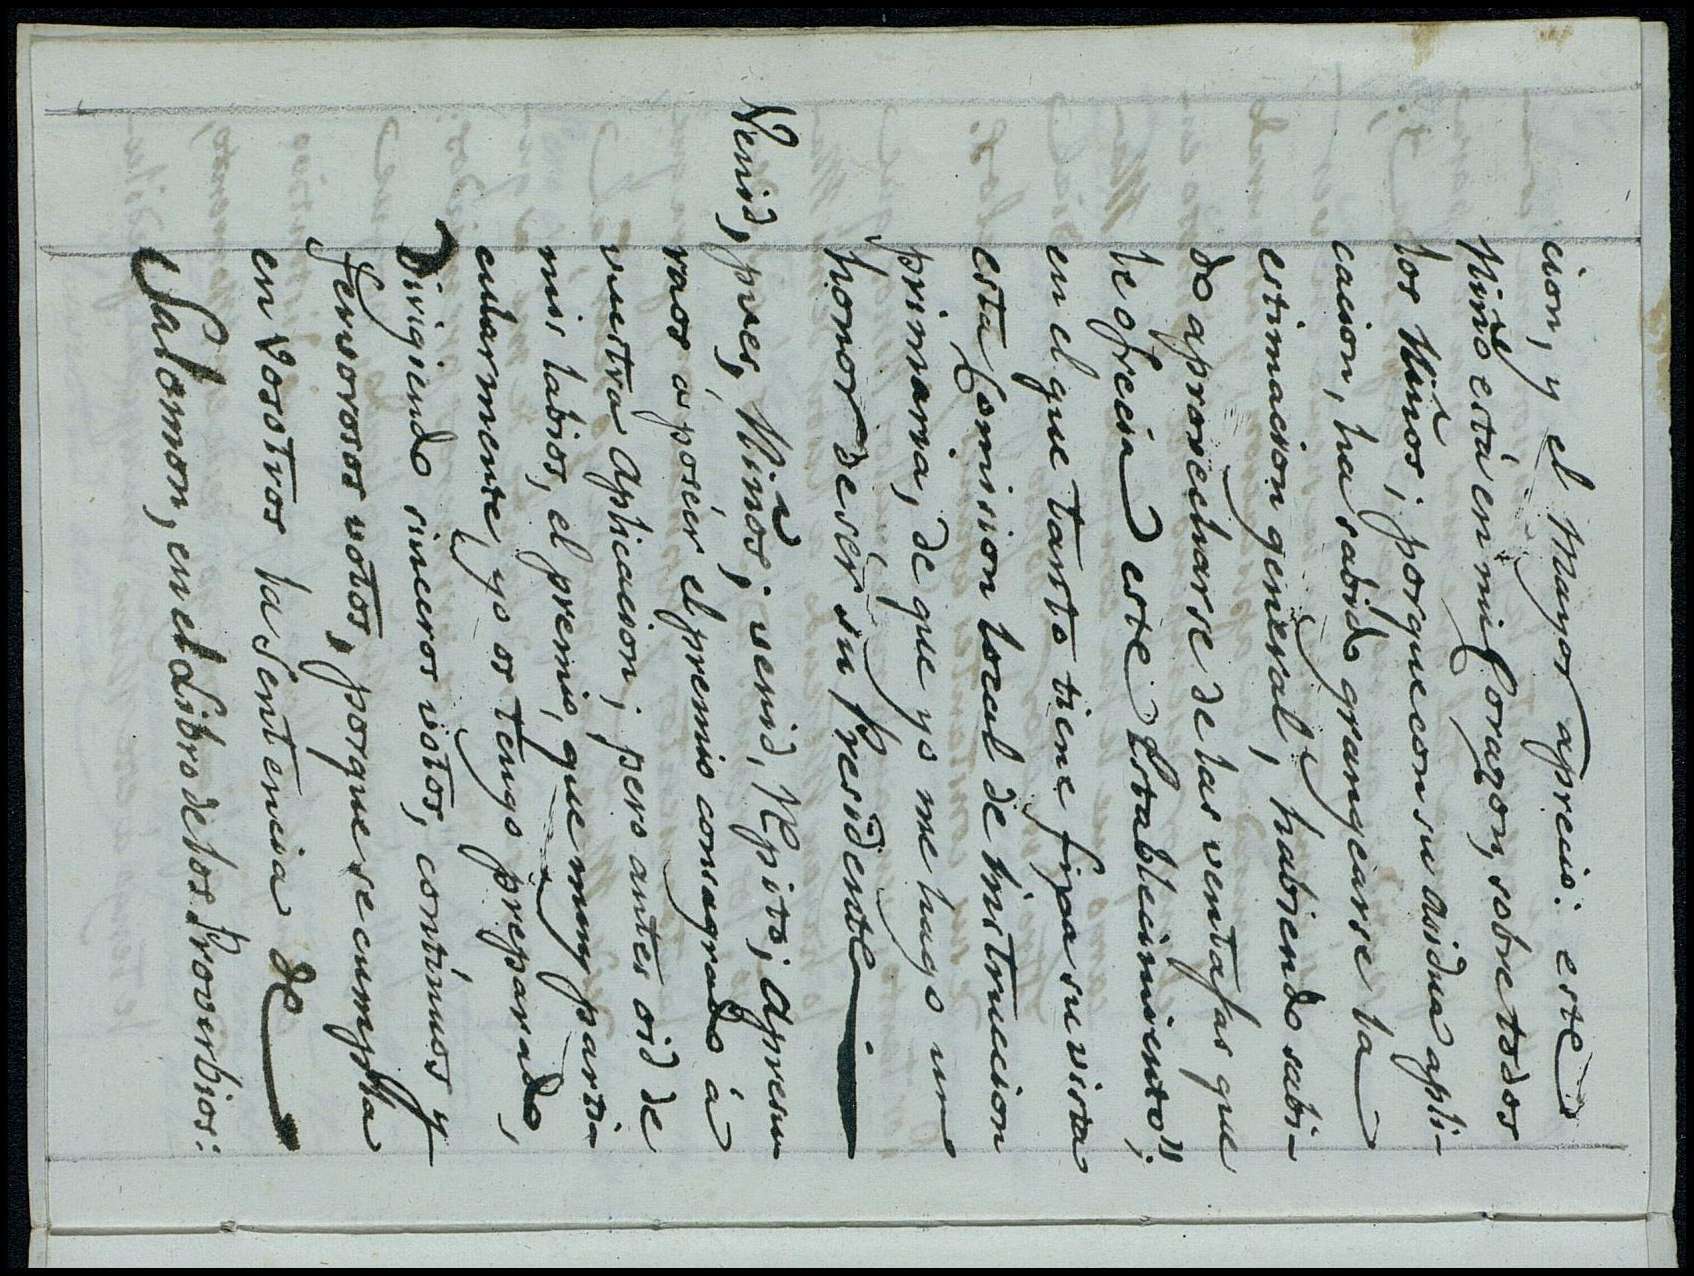 cion, y el mayor aprecio: este
Niño está en mi Corazon, sobre todos
los Niños; porque con su asidua apli-
cacion, ha sabido grangearse la
estimacion general, habiendo sabi-
do aprovecharse de las ventajas que
le ofrecia este Establecimiento",
en el que tanto tiene fija su vista
esta Comision local de Instruccion
primaria, de que yo me hago un
honor de sér su Presidente.
Venid, pues, Niños; venid, Repito; apresu
raos á poséer el premio consagrado á
vuestra aplicacion; pero antes oid de
mis labios, el premio, que muy parti
cularmente yo os tengo preparado,
Dirigiendo sinceros votos, contínuos y
fervorosos votos, porque se cumpla
en vosotros la sentencia de
Salomon, en el Libro de los Provérbios: